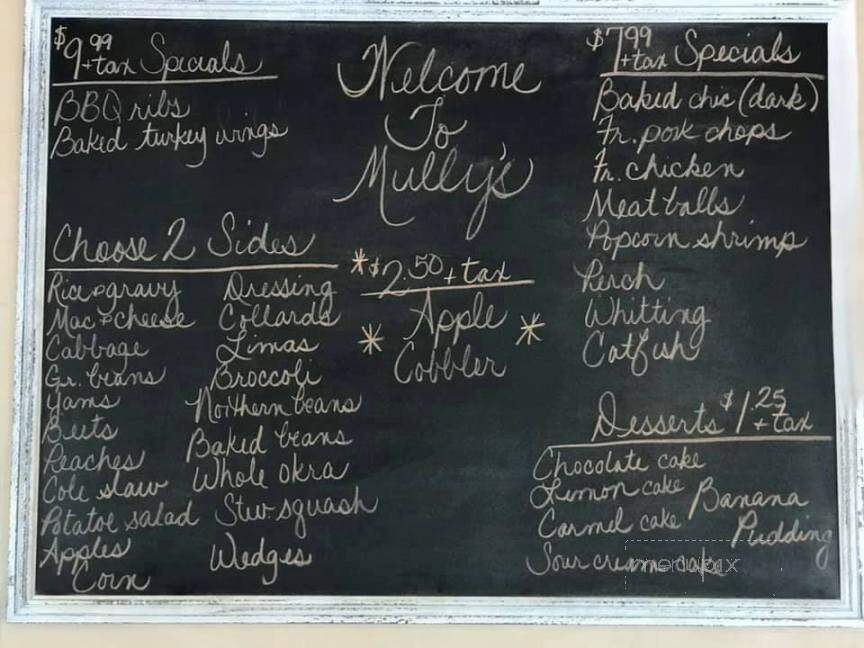 $9.99 + tax Specials
BBQ ribs
Baked turkey wings
Welcome
To
Mully's
$7.99 + tax Specials
Baked chic (dark)
Fr. pork chops
Fr. chicken
Meatballs
Popcorn shrimp
Perch
Whitting
Catfish
Choose 2 Sides
Rice & gravy Dressing
Mac & cheese Collards
Cabbage Limas
Gr. beans Broccoli
Yams Northern beans
Beets Baked beans
Peaches Whole okra
Cole slaw Stew squash
Potatoe salad Wedges
Apples
Corn
*$2.50 + tax
* Apple *
Cobbler
Desserts $1.25 + tax
Chocolate cake
Limon cake Banana
Carmel cake Pudding
Sour cream cake
menupix